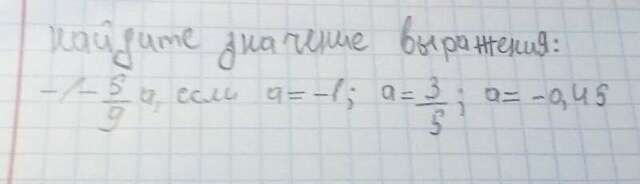 найдите значение выражения:
-/-5/9 a, если a = -1; a = 3/5; a = -0,45